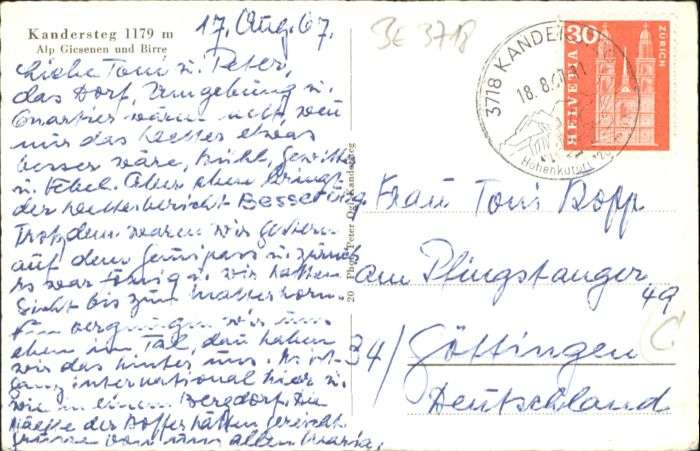 Kandersteg 1179 m
Alp Giesenen und Birre
17. Aug. 67.
BE 3718
Liebe Toni u. Peter,
das Dorf, Umgebung u.
Quartier wären nett, wenn
nur das Wetter etwas
besser wäre, Kühl, Gewitter
u. Nebel. Aber eben bringt
der Wetterbericht Besserung
Trotzdem waren wir gestern
auf dem Gemipass u. zurück
Es war sonnig u. wir hatten
Sicht bis zum Matterhorn.
wir uns
eben im Tal, dan haben
wir das hinter uns. Es ist
ganz international hier u.
wie in einem Bergdorf. Die
Hälfte der Koffer hätten gereicht.
Grüsse von uns allen Maria.
20 Phot. Peter Ogi, Kandersteg
3718 KANDERSTEG
18.8.67
Höhenkurort
30
HELVETIA
ZÜRICH
Frau Toni Bopp
am Pfingstanger
49
34/ Göttingen
Deutschland
C